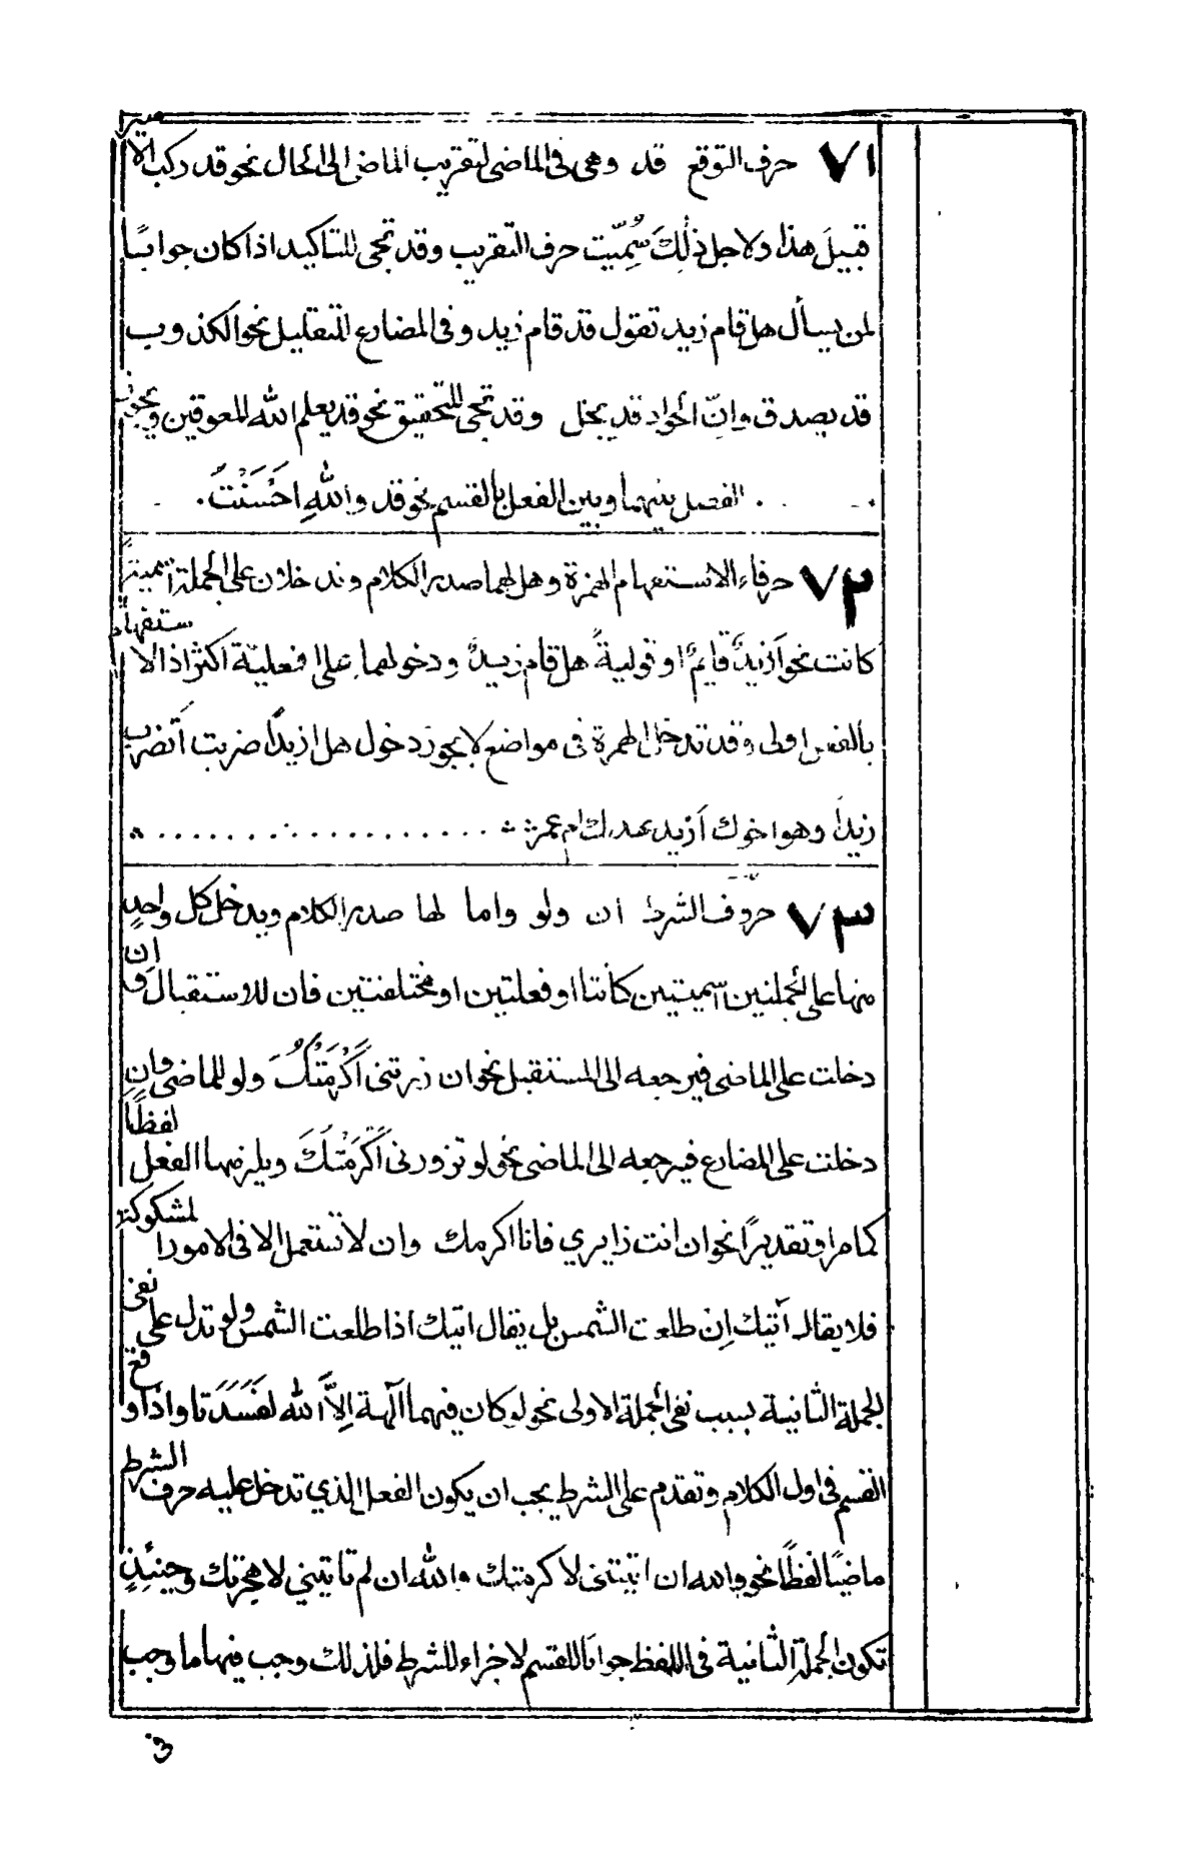 ٧١ حرف التوقع قد وهى فى الماضى لتقريب الماضى الى الحال نحو قد ركب الامير
قبيل هذا ولاجل ذٰلِكَ سُمِّيَت حرف التقريب وقد تجى للتاكيد اذا كان جوابًا
لمن يسأل هل قام زيد تقول قد قام زيد وفى المضارع للتقليل نحو الكذوب
قد يصدق وانّ الجواد قد يبخل وقد تجى للتحقيق نحو قد يعلم الله المعوقين ويجوز
الفصل بينهما وبين الفعل بالقسم نحو قد واللهِ احْسَنْتَ
٧٢ حرفاء الاستفهام الهمزة وهل لهما صدر الكلام وتدخلان على الجملة اسمية
كانت نحو أزيدٌ قايمٌ او فعلية هل قام زيدٌ ودخولهما على الفعلية اكثر اذ الاستفهام
بالفعل اولى وقد تدخل الهمزة فى مواضع لا يجوز دخول هل ازيدًا ضربت أتضرب
زيدا وهو اخوك أزيد عندك ام عمر
٧٣ حروف الشرط ان ولو واما لها صدر الكلام ويدخل كل واحدٍ
منها على الجملتين اسميتين كانتا او فعلتين او مختلفتين فان للاستقبال وان
دخلت على الماضى فيرجعه الى المستقبل نحو ان زرتنى أَكْرَمْتُكَ ولو للماضى وان
دخلت على المضارع فيرجعه الى الماضى نحو لو تزورنى أَكْرَمْتُكَ ويلزمها الفعل لفظًا
كما مر او تقديرًا نحو ان انت زايري فانا اكرمك وان لا تستعمل الا فى الامور المشكوكة
فلا يقال آتيك اِن طلعت الشمس بل يقال اتيك اذا طلعت الشمس ولو تدل على نفى
الجملة الثانية بسبب نفى الجملة الاولى نحو لو كان فيهما آلهة اِلاَّ الله لَفَسَدَتا واذا وقع
القسم فى اول الكلام وتقدم على الشرط يجب ان يكون الفعل الذي تدخل عليه حرف الشرط
ماضيًا لفظًا نحو والله ان اتيتنى لاكرمتك والله ان لم تاتيني لاهجرتك وحينئذٍ
تكون الجملة الثانية فى اللفظ جوابًا للقسم لا جزاء للشرط فلذلك وجب فيها ما وجب